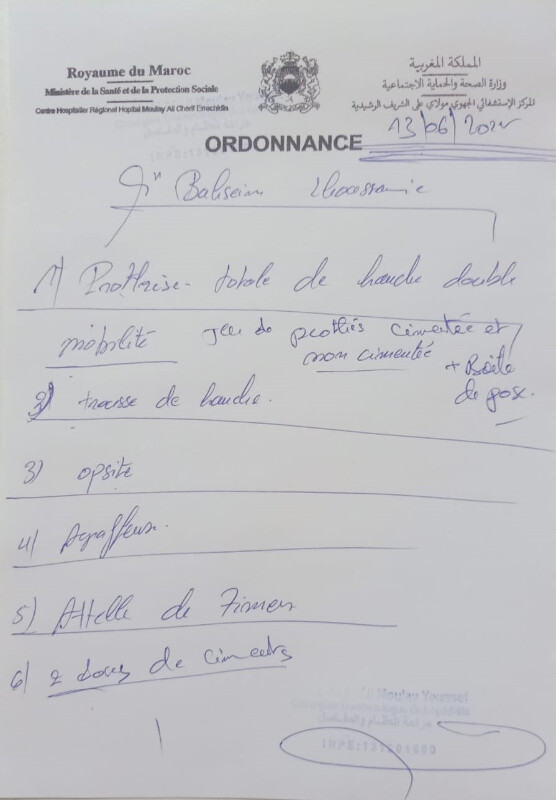 Royaume du Maroc
Ministère de la Santé et de la Protection Sociale
Centre Hospitalier Régional Hopital Moulay Ali Cherif Errachidia
المملكة المغربية
وزارة الصحة والحماية الاجتماعية
المركز الإستشفائي الجهوي مولاي علي الشريف الرشيدية
13/06/202
ORDONNANCE
1) Prothèse totale de hanche double
mobilité jeu de prothés cimentée et
non cimentée + Boite
de pose.
2) trousse de hanche.
3) opsite
4) Agraffeuse.
5) Attelle de Zimer
6) 2 doses de ciments
Moulay Youssef
جراحة العظام والمفاصل
INPE: